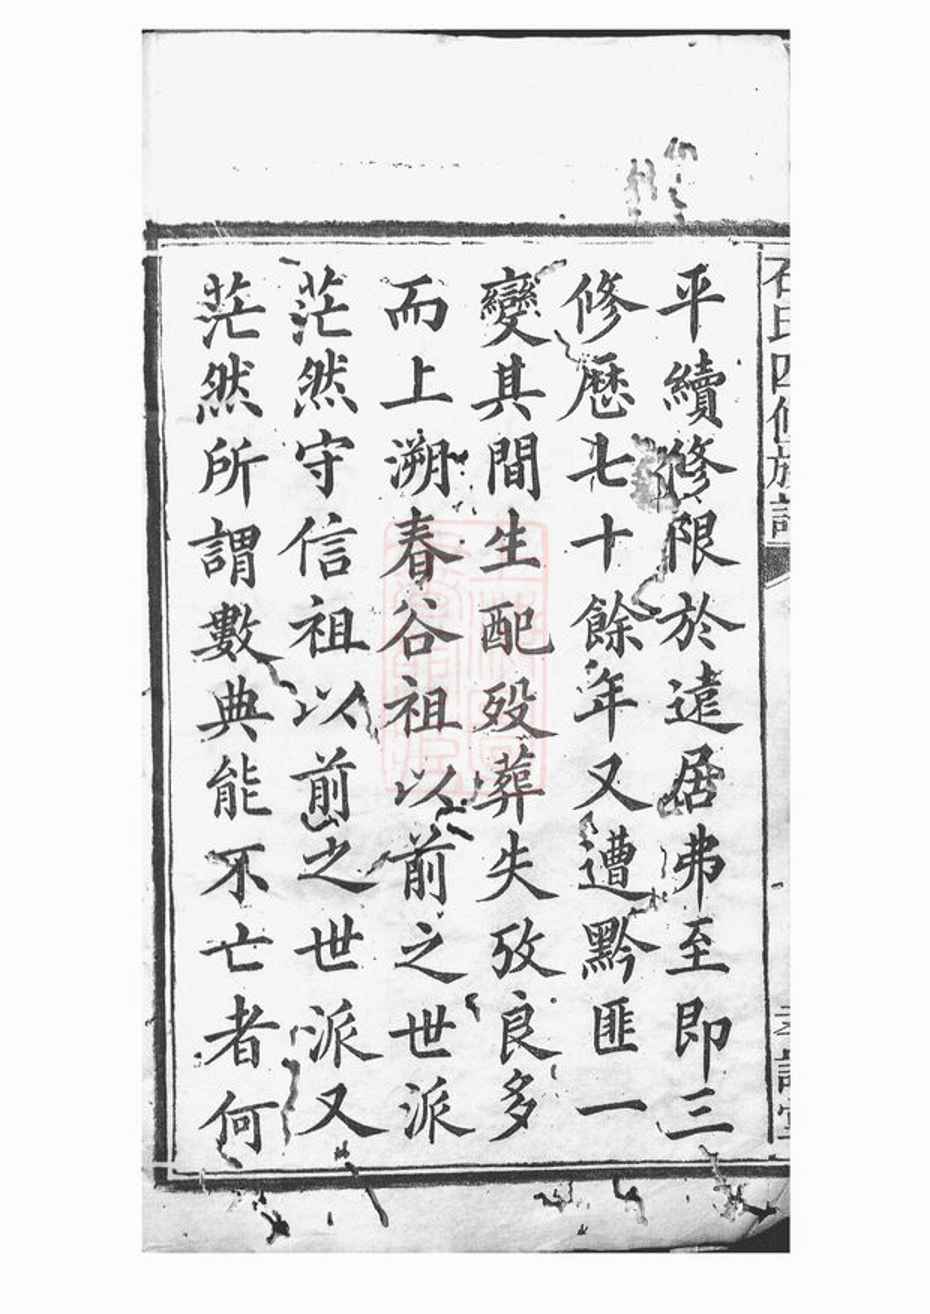 石氏四修族譜
平續修限於遠居弗至即三
修歷七十餘年又遭黔匪一
變其間生配歿葬失攷良多
而上溯春谷祖以前之世派
茫然守信祖以前之世派又
茫然所謂數典能不亡者何